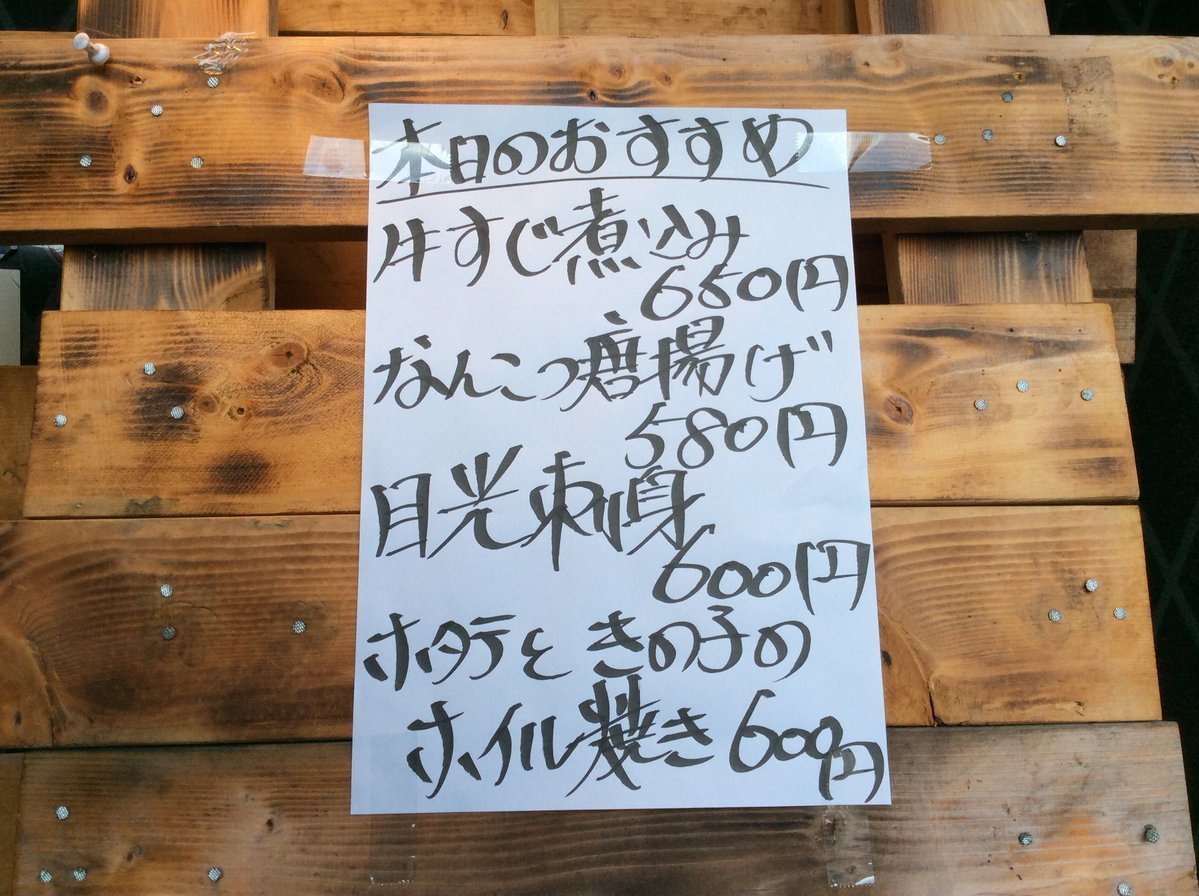 本日のおすすめ
牛すじ煮込み
650円
なんこつ唐揚げ
580円
目光刺身
600円
ホタテときの子の
ホイル焼き 600円